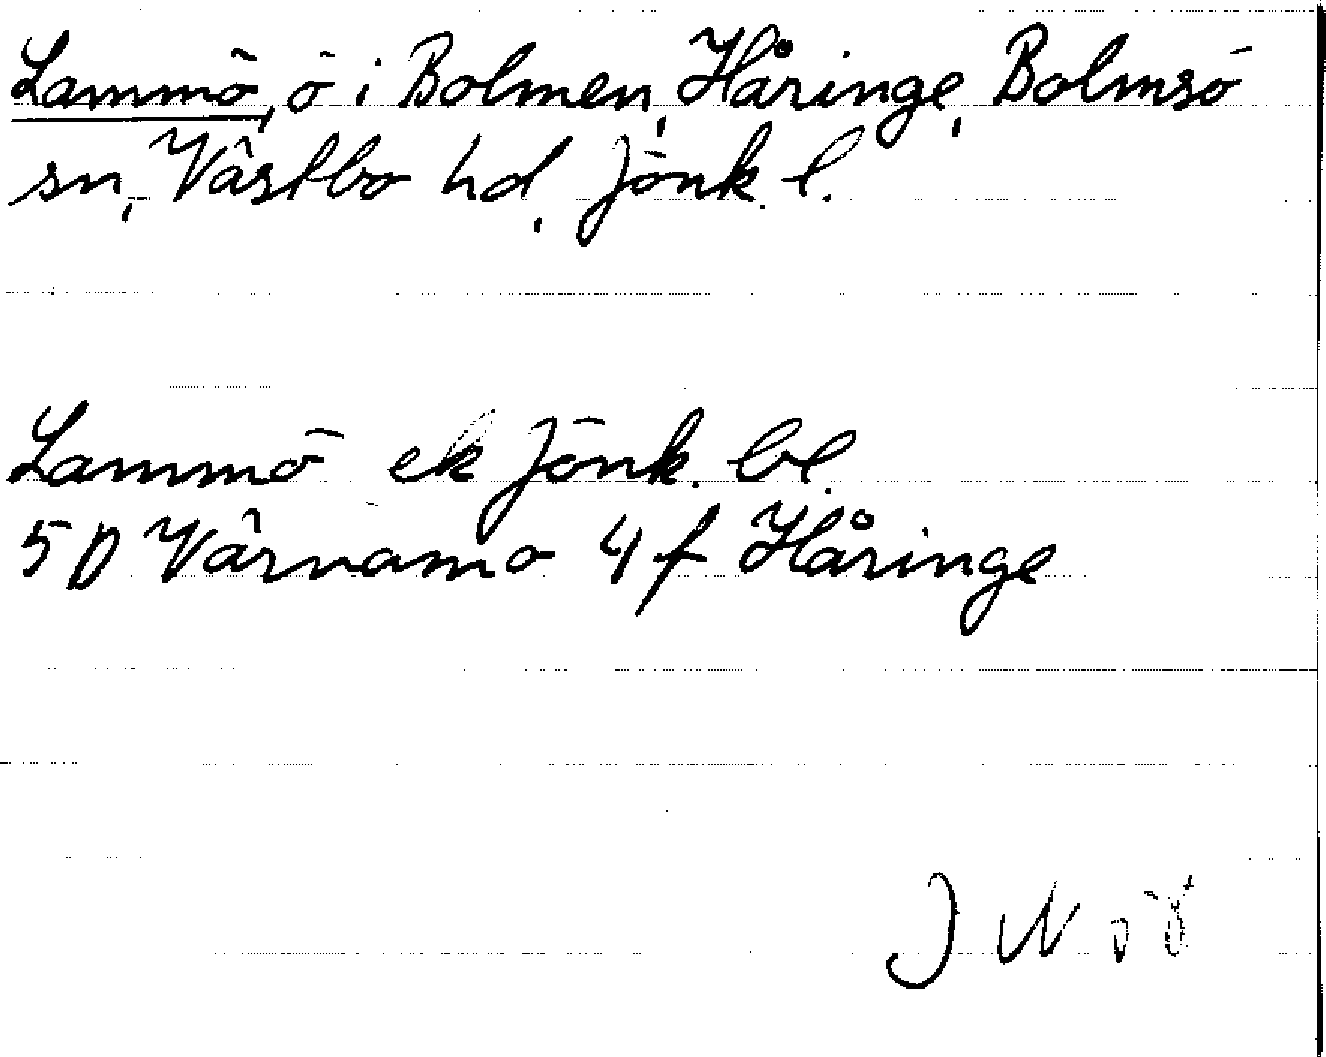 Lammö, ö i Bolmen, Håringe, Bolmsö
sn, Västbo hd, Jönk. l.
Lammö ek Jönk. bl.
5D Värnamo 4f Håringe